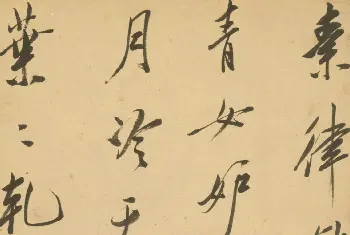 素律
青女妒
月冷
葉〻軋